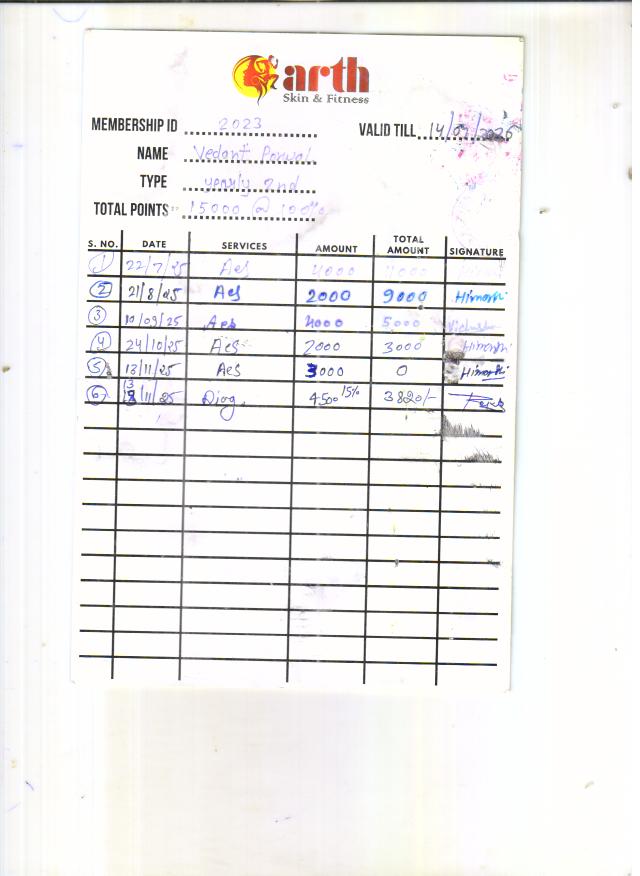 arth
Skin & Fitness
MEMBERSHIP ID 2023 VALID TILL 14/07/2026
NAME Vedant Porwal
TYPE yearly 2nd
TOTAL POINTS 15000 @ 100%
S. NO. DATE SERVICES AMOUNT TOTAL AMOUNT SIGNATURE
1 22/7/25 Aes 4000 11000
2 21/8/25 Aes 2000 9000 Himanshi
3 10/09/25 Aes 4000 5000
4 24/10/25 Aes 2000 3000 Himanshi
5 13/11/25 Aes 3000 0 Himanshi
6 13/11/25 Diag. 4500 15% 3820/-